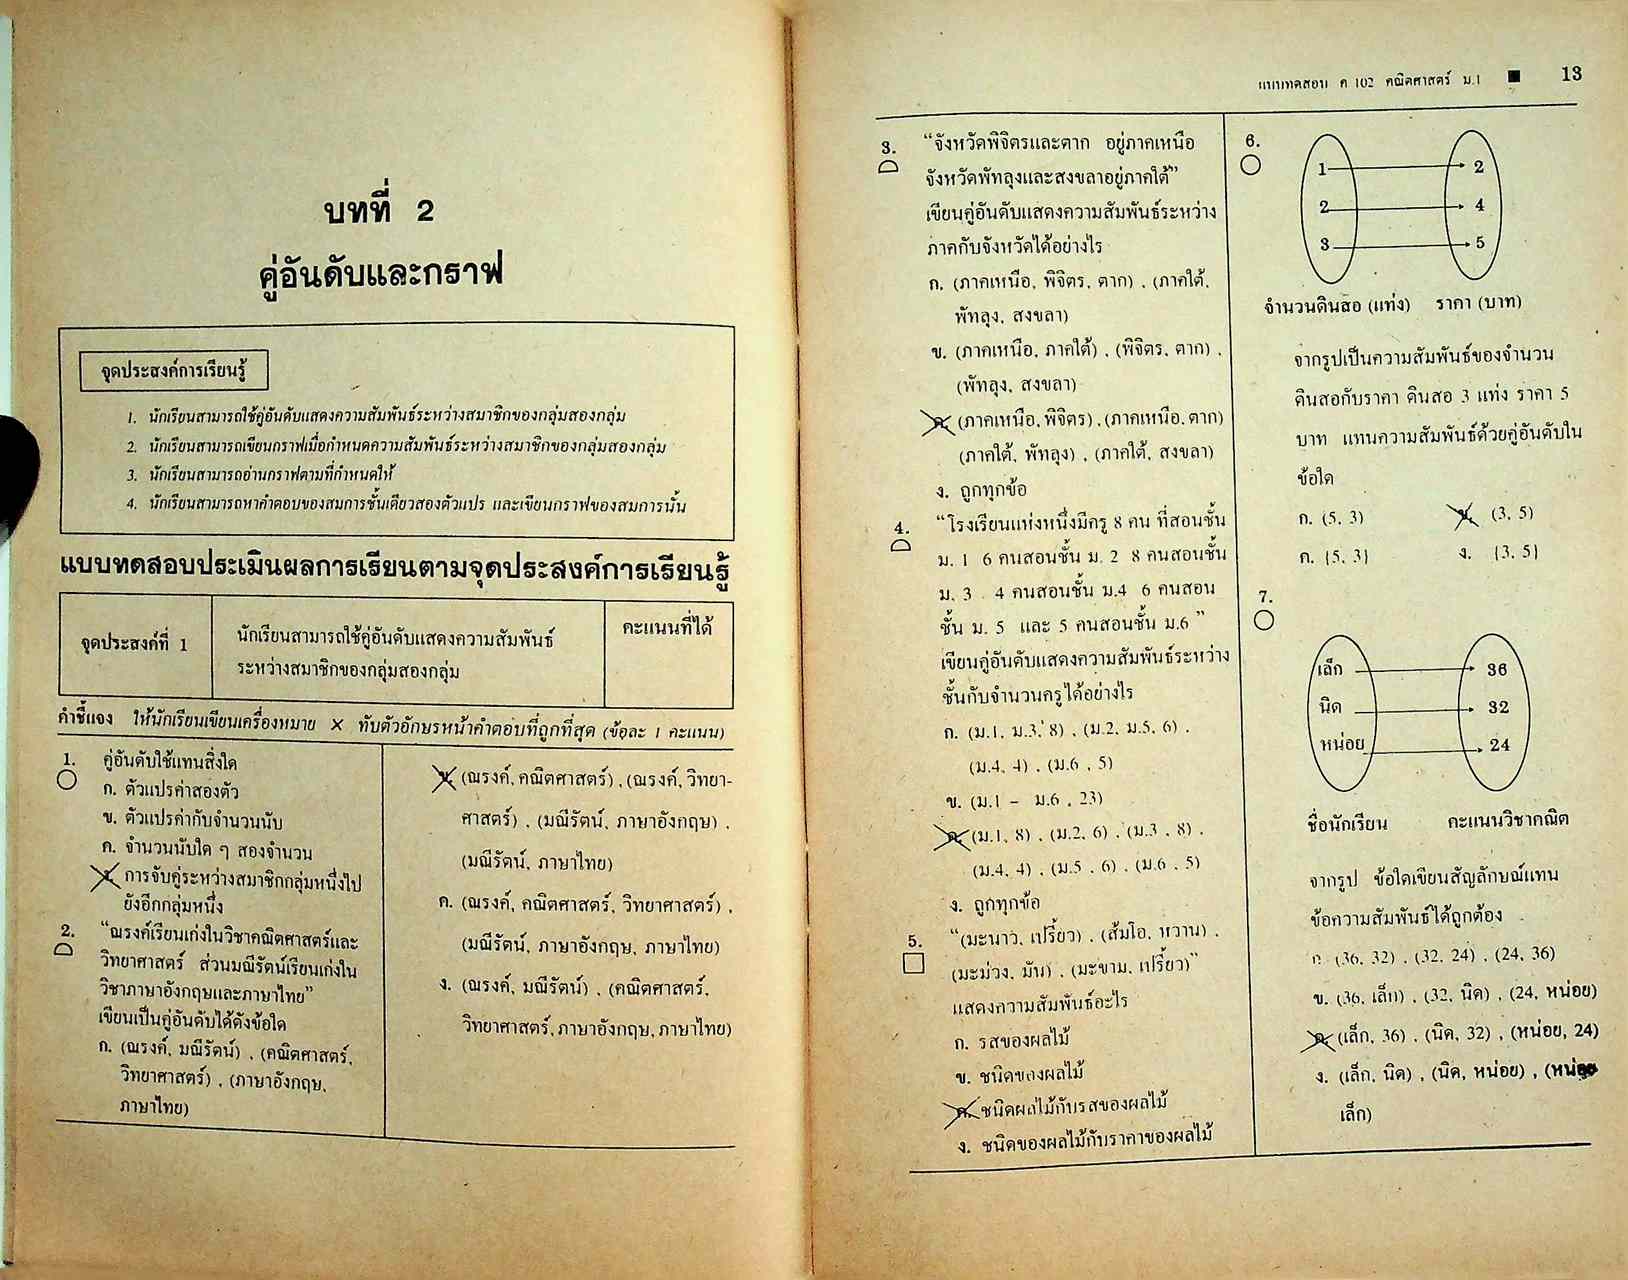 บทที่ 2
คู่อันดับและกราฟ
จุดประสงค์การเรียนรู้
1. นักเรียนสามารถใช้คู่อันดับแสดงความสัมพันธ์ระหว่างสมาชิกของกลุ่มสองกลุ่ม
2. นักเรียนสามารถเขียนกราฟเมื่อกำหนดความสัมพันธ์ระหว่างสมาชิกของกลุ่มสองกลุ่ม
3. นักเรียนสามารถอ่านกราฟตามที่กำหนดให้
4. นักเรียนสามารถหาคำตอบของสมการชั้นเดียวสองตัวแปร และเขียนกราฟของสมการนั้น
แบบทดสอบประเมินผลการเรียนตามจุดประสงค์การเรียนรู้
จุดประสงค์ที่ 1
นักเรียนสามารถใช้คู่อันดับแสดงความสัมพันธ์
ระหว่างสมาชิกของกลุ่มสองกลุ่ม
คะแนนที่ได้
คำชี้แจง ให้นักเรียนเขียนเครื่องหมาย × ทับตัวอักษรหน้าคำตอบที่ถูกที่สุด (ข้อละ 1 คะแนน)
1. คู่อันดับใช้แทนสิ่งใด
ก. ตัวแปรค่าสองตัว
ข. ตัวแปรค่ากับจำนวนนับ
ค. จำนวนนับใด ๆ สองจำนวน
ง. การจับคู่ระหว่างสมาชิกกลุ่มหนึ่งไป
ยังอีกกลุ่มหนึ่ง
2. "ณรงค์เรียนเก่งในวิชาคณิตศาสตร์และ
วิทยาศาสตร์ ส่วนมณีรัตน์เรียนเก่งใน
วิชาภาษาอังกฤษและภาษาไทย"
เขียนเป็นคู่อันดับได้ดังข้อใด
ก. (ณรงค์, มณีรัตน์) , (คณิตศาสตร์,
วิทยาศาสตร์) , (ภาษาอังกฤษ,
ภาษาไทย)
ข. (ณรงค์, คณิตศาสตร์) , (ณรงค์, วิทยา-
ศาสตร์) , (มณีรัตน์, ภาษาอังกฤษ) ,
(มณีรัตน์, ภาษาไทย)
ค. (ณรงค์, คณิตศาสตร์, วิทยาศาสตร์) ,
(มณีรัตน์, ภาษาอังกฤษ, ภาษาไทย)
ง. (ณรงค์, มณีรัตน์) , (คณิตศาสตร์,
วิทยาศาสตร์, ภาษาอังกฤษ, ภาษาไทย)
แบบทดสอบ ค 102 คณิตศาสตร์ ม.1 ■ 13
3. "จังหวัดพิจิตรและตาก อยู่ภาคเหนือ
จังหวัดพัทลุงและสงขลาอยู่ภาคใต้"
เขียนคู่อันดับแสดงความสัมพันธ์ระหว่าง
ภาคกับจังหวัดได้อย่างไร
ก. (ภาคเหนือ, พิจิตร, ตาก) , (ภาคใต้,
พัทลุง, สงขลา)
ข. (ภาคเหนือ, ภาคใต้) , (พิจิตร, ตาก) ,
(พัทลุง, สงขลา)
ค. (ภาคเหนือ, พิจิตร) , (ภาคเหนือ, ตาก)
(ภาคใต้, พัทลุง) , (ภาคใต้, สงขลา)
ง. ถูกทุกข้อ
4. "โรงเรียนแห่งหนึ่งมีครู 8 คน ที่สอนชั้น
ม. 1 6 คนสอนชั้น ม. 2 8 คนสอนชั้น
ม. 3 . 4 คนสอนชั้น ม.4 6 คนสอน
ชั้น ม. 5 และ 5 คนสอนชั้น ม.6 "
เขียนคู่อันดับแสดงความสัมพันธ์ระหว่าง
ชั้นกับจำนวนครูได้อย่างไร
ก. (ม.1, ม.3, 8) , (ม.2, ม.5, 6) ,
(ม.4, 4) , (ม.6 , 5)
ข. (ม.1 – ม.6 , 23)
ค. (ม.1, 8) , (ม.2, 6) , (ม.3 , 8) ,
(ม.4, 4) , (ม.5 , 6) , (ม.6 , 5)
ง. ถูกทุกข้อ
5. "(มะนาว, เปรี้ยว) , (ส้มโอ, หวาน) ,
(มะม่วง, มัน) , (มะขาม, เปรี้ยว)"
แสดงความสัมพันธ์อะไร
ก. รสของผลไม้
ข. ชนิดของผลไม้
ค. ชนิดผลไม้กับรสของผลไม้
ง. ชนิดของผลไม้กับราคาของผลไม้
6.
1 2
2 4
3 5
จำนวนดินสอ (แท่ง) ราคา (บาท)
จากรูปเป็นความสัมพันธ์ของจำนวน
ดินสอกับราคา ดินสอ 3 แท่ง ราคา 5
บาท แทนความสัมพันธ์ด้วยคู่อันดับใน
ข้อใด
ก. (5, 3) ข. (3, 5)
ค. {5, 3} ง. {3, 5}
7.
เล็ก 36
นิด 32
หน่อย 24
ชื่อนักเรียน คะแนนวิชาคณิต
จากรูป ข้อใดเขียนสัญลักษณ์แทน
ข้อความสัมพันธ์ได้ถูกต้อง
ก (36, 32) , (32, 24) , (24, 36)
ข. (36, เล็ก) , (32, นิด) , (24, หน่อย)
ค. (เล็ก, 36) , (นิด, 32) , (หน่อย, 24)
ง. (เล็ก, นิด) , (นิด, หน่อย) , (หน่อย
เล็ก)